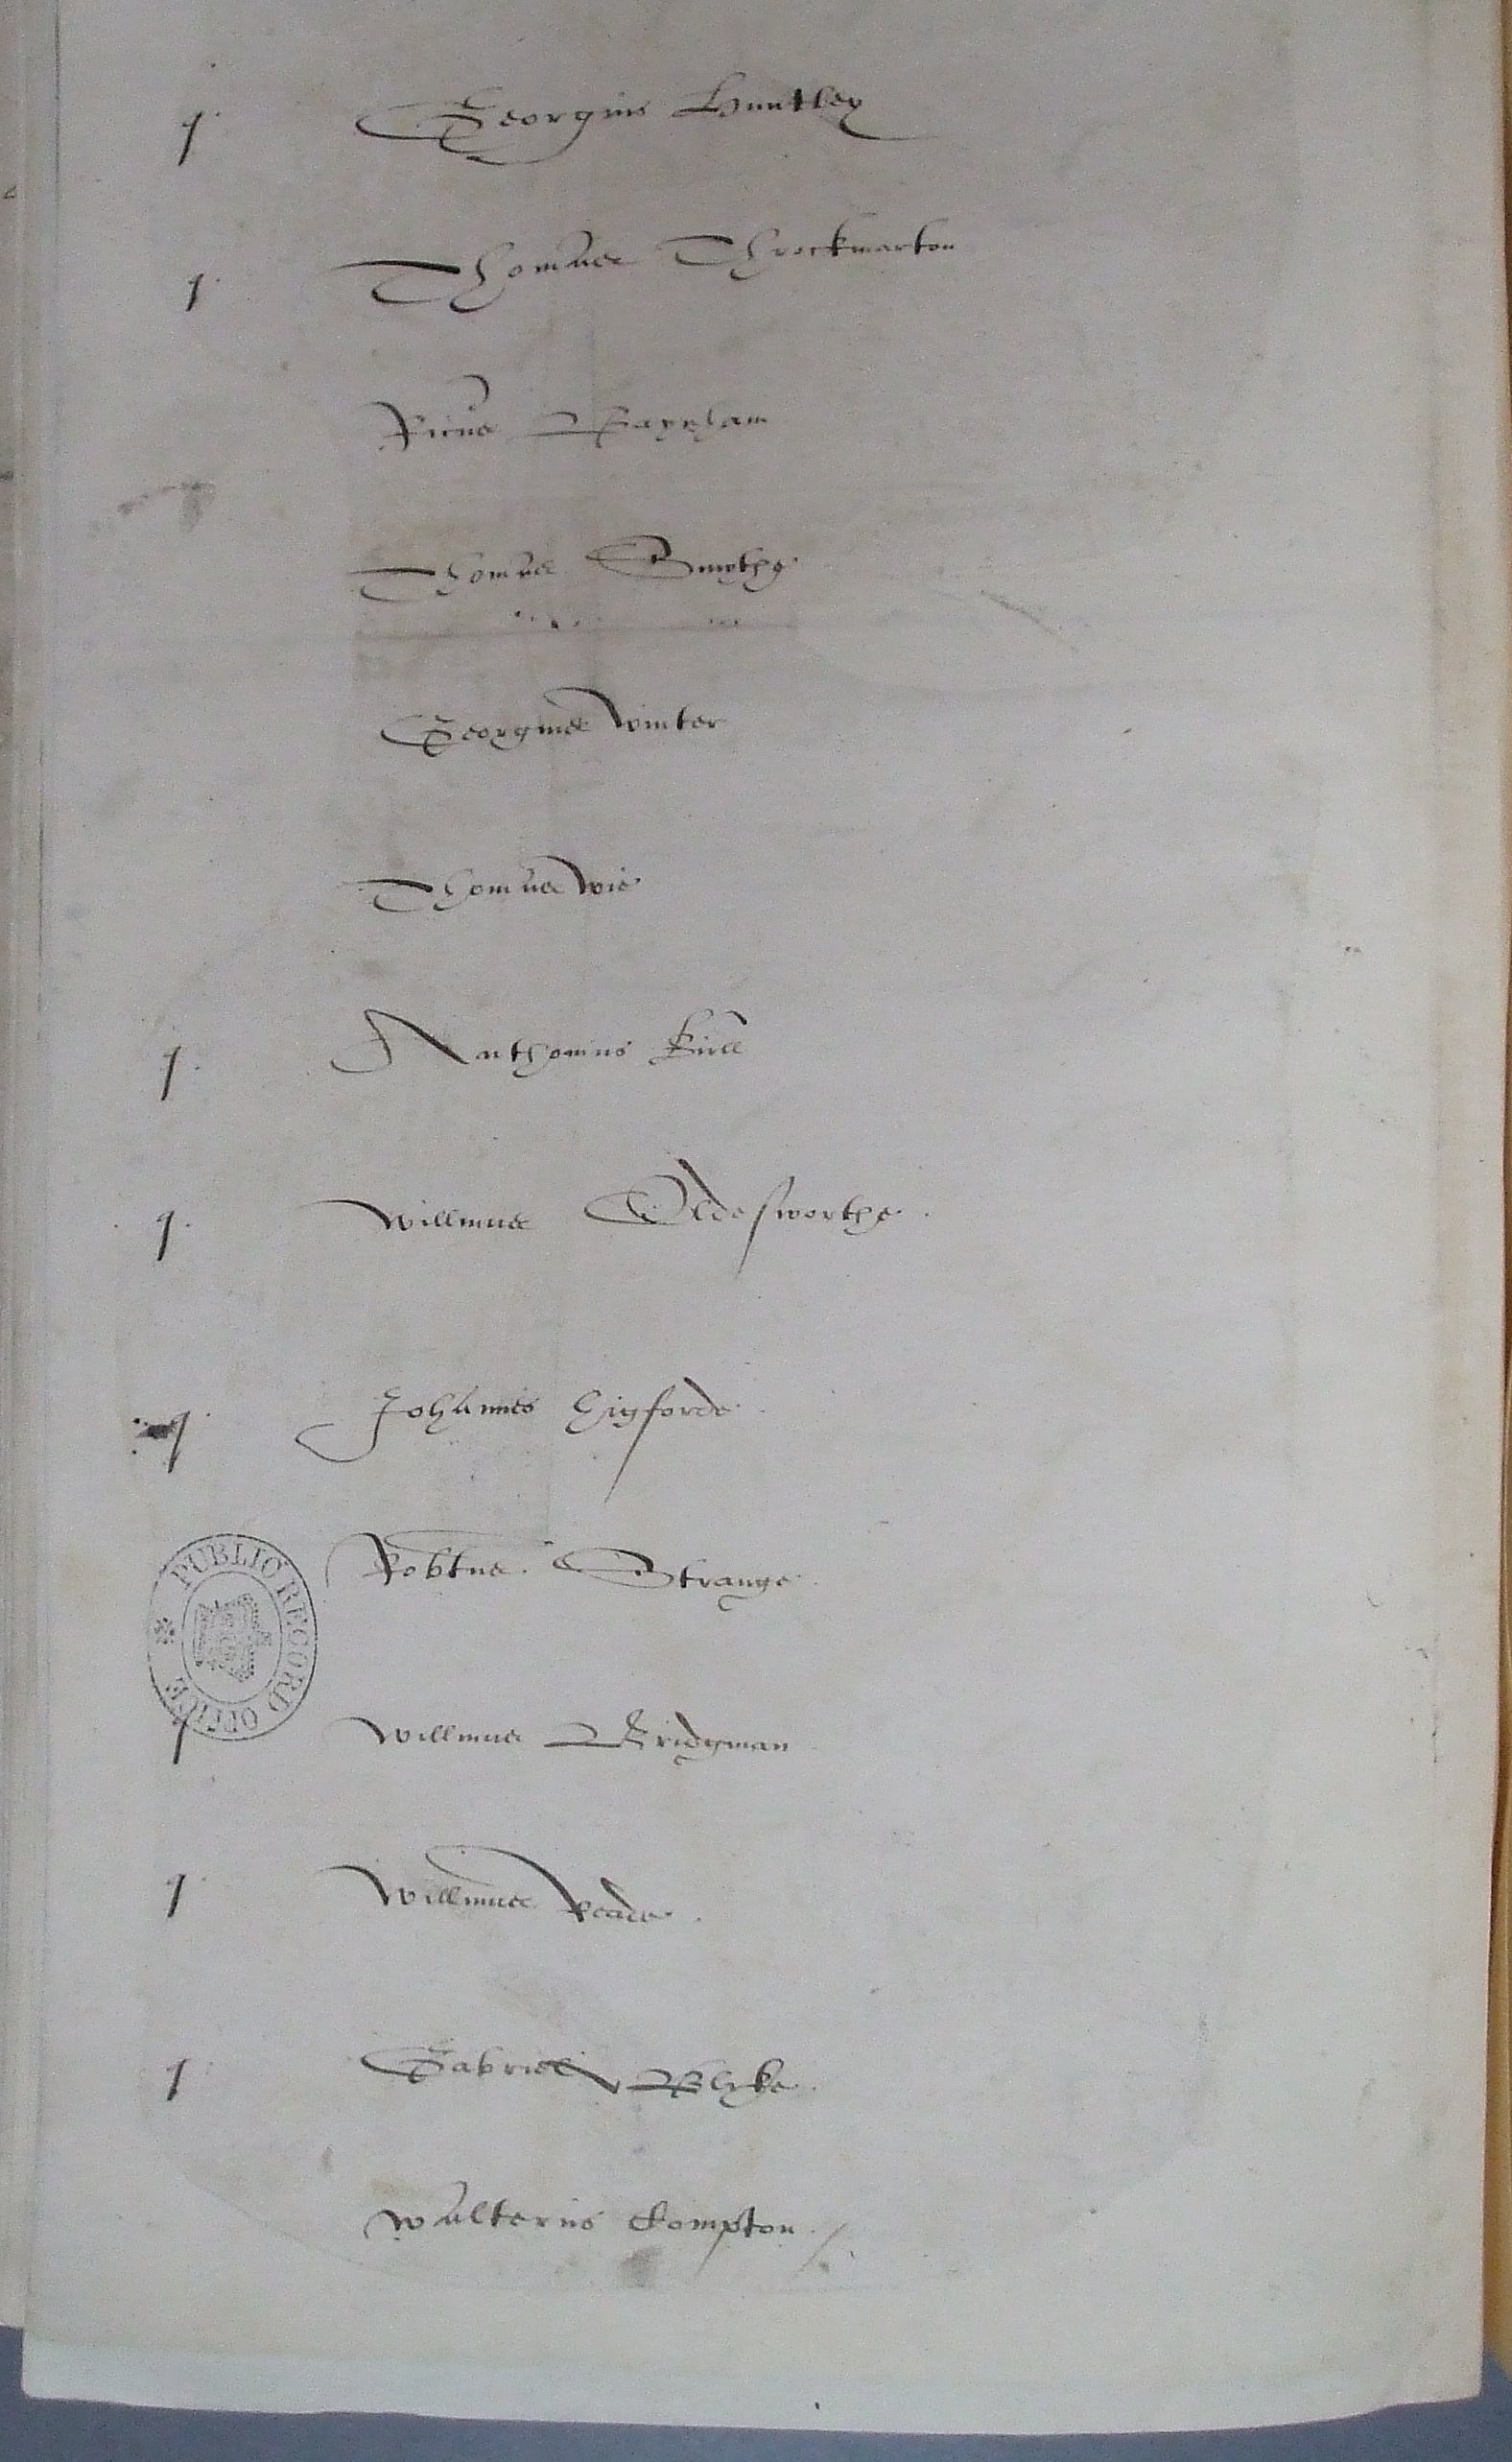 q Georgius Huntley
q Thomas Throckmarton
Ricus Baynham
Thomas Smythe
Georgius Winter
Thomas Wie
q Anthonius Kirle
q Willmus Oldesworthe
q Johannes Higforde
Robtus Strange
PUBLIC RECORD OFFICE
q Willmus Bridgman
q Willmus Reade
q Gabriell Blyke
Walterus Compton